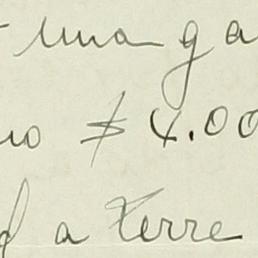 una ga
no $ 4.00
d a terre